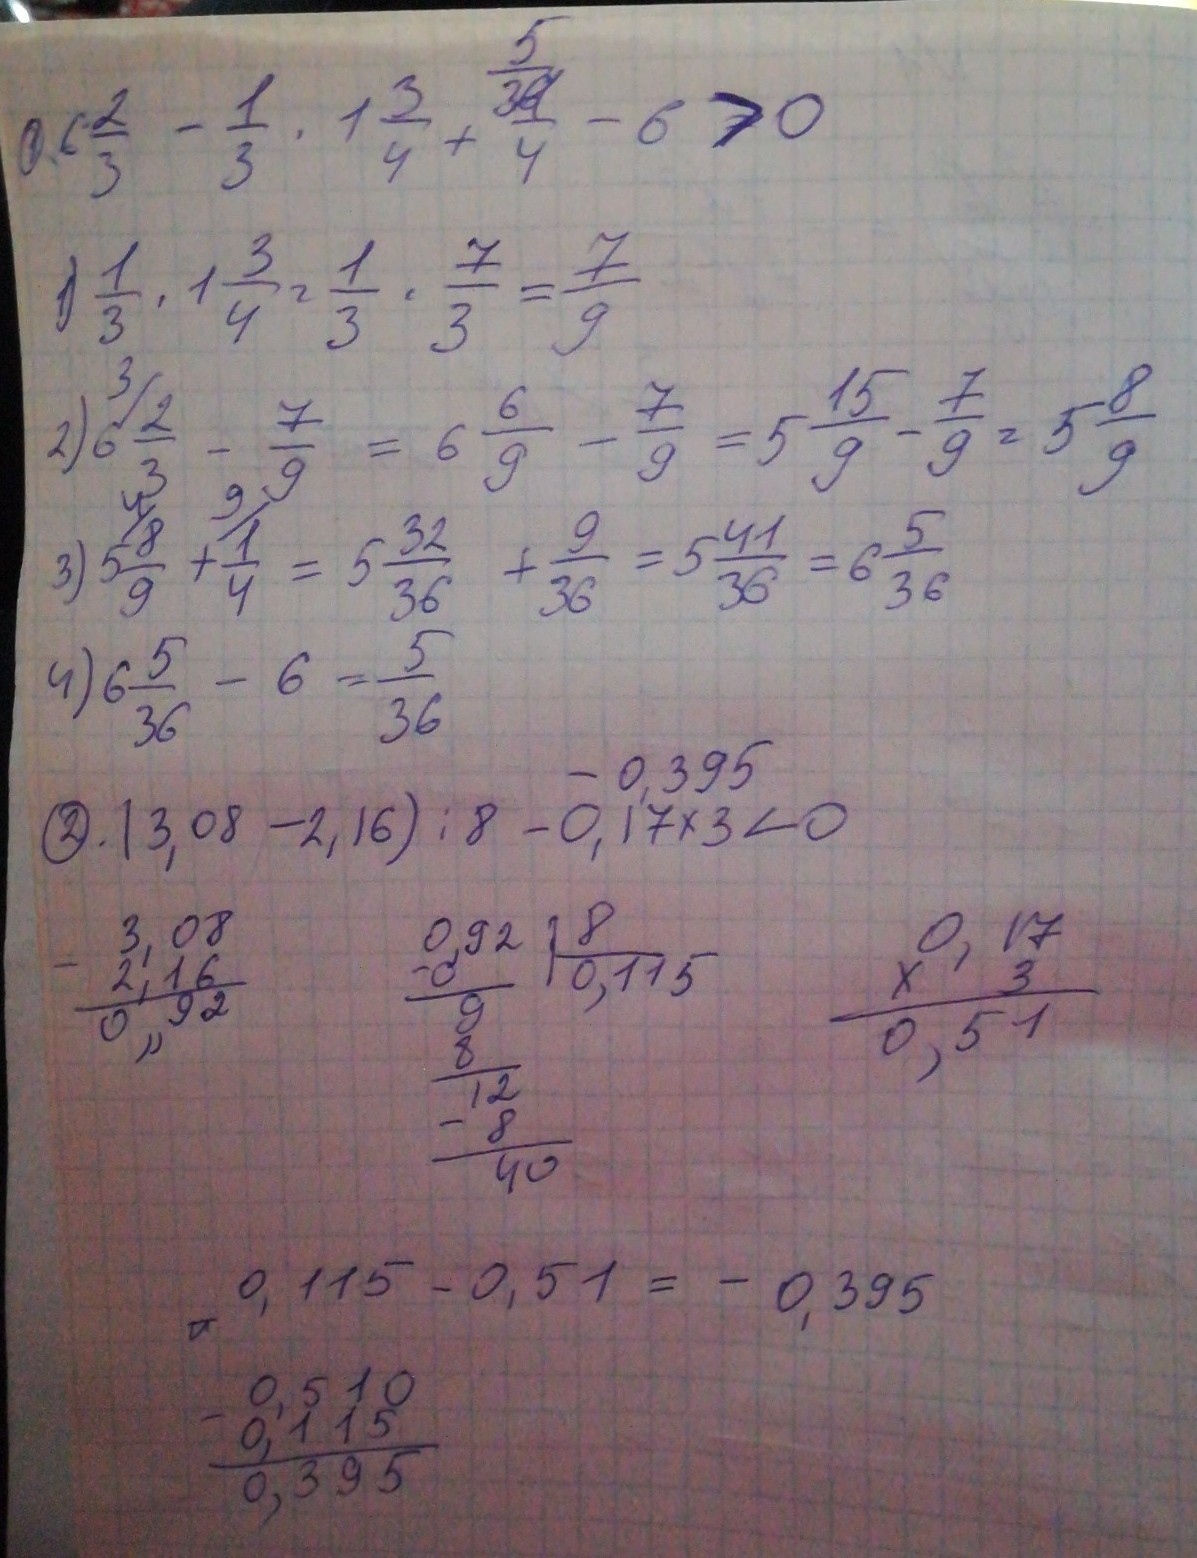 5/36
1. 6 2/3 - 1/3 · 1 3/4 + 1/4 - 6 > 0
1) 1/3 · 1 3/4 = 1/3 · 7/3 = 7/9
2) 6 2/3 - 7/9 = 6 6/9 - 7/9 = 5 15/9 - 7/9 = 5 8/9
3) 5 8/9 + 1/4 = 5 32/36 + 9/36 = 5 41/36 = 6 5/36
4) 6 5/36 - 6 = 5/36
- 0,395
2. (3,08 - 2,16) : 8 - 0,17 x 3 < 0
- 3,08
2,16
0,92
0,92 | 8
- 0 0,115
9
8
12
- 8
40
0,17
x 3
0,51
0,115 - 0,51 = - 0,395
- 0,510
0,115
0,395